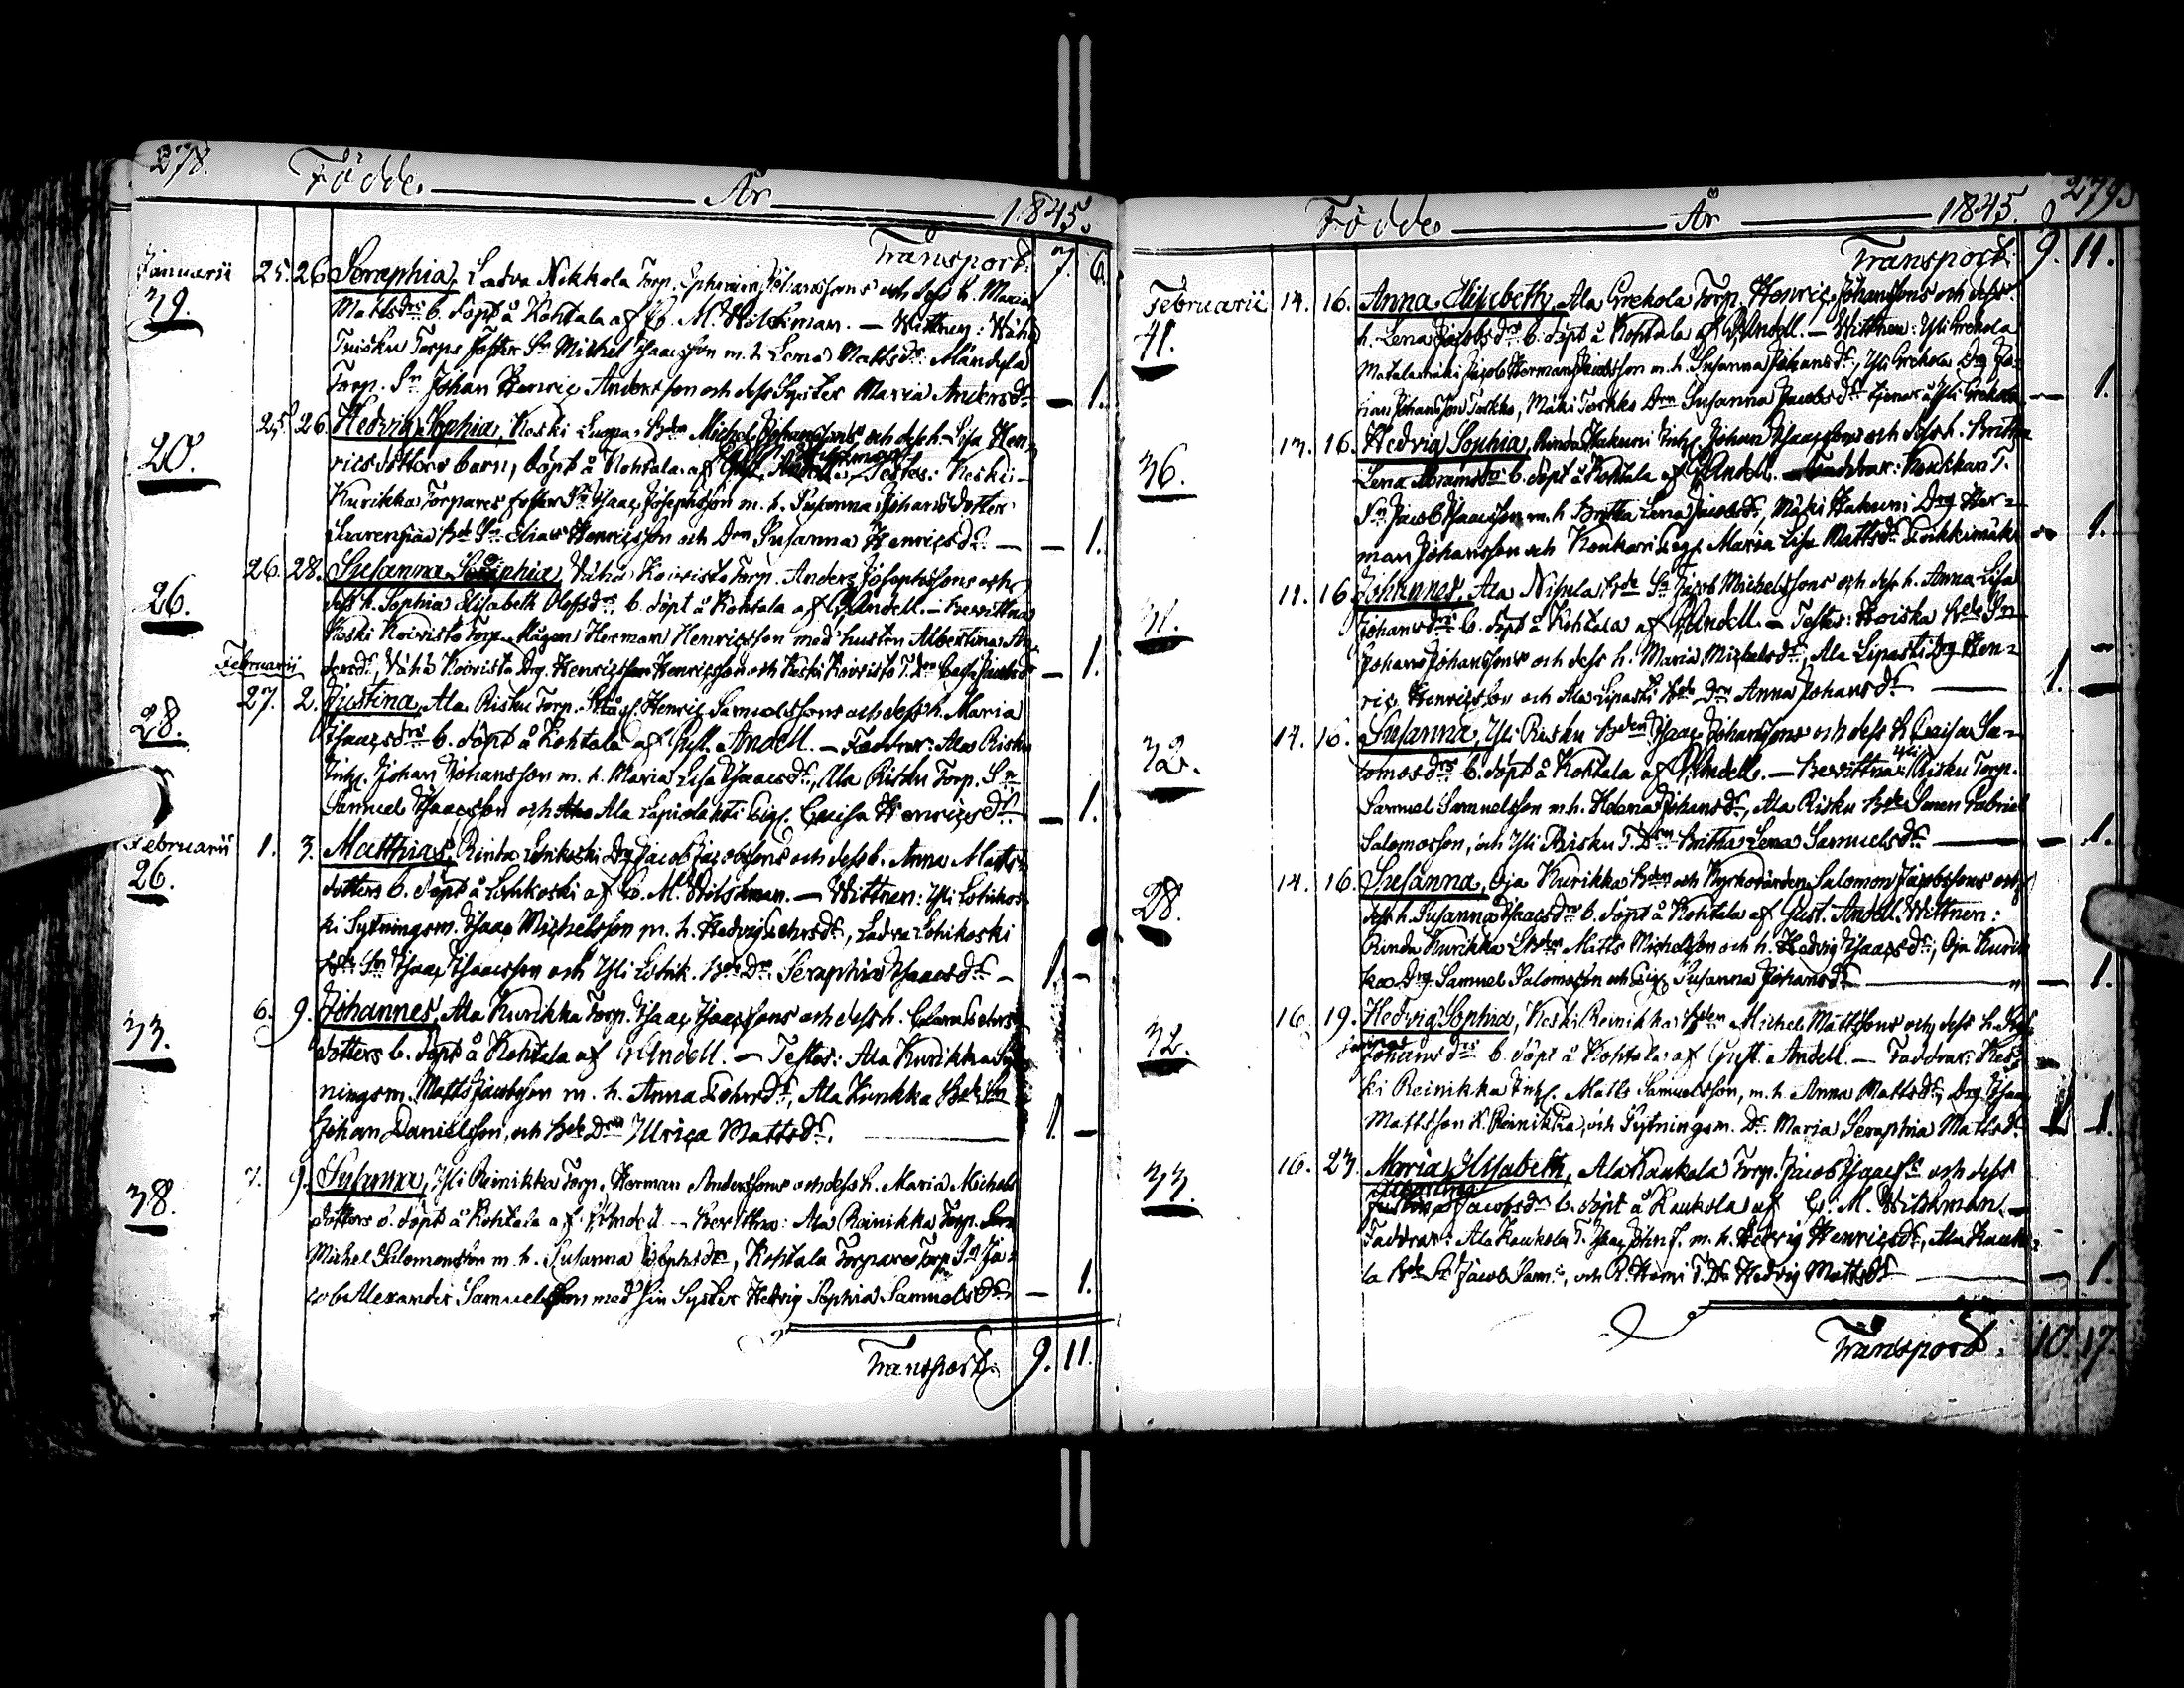 278.
Födde. År 1845.
Transport. 7. 6.
Januarii 25. 26. Seraphia, Ladva Nikkola Torp. Ephraim Johanssons och dess h. Maria
39. Mattsdrs b. döpt å Kohtala af C. M. Wilskman. — Wittnen:
Torps Michel Isaacsson m. h. Lena Mattsdr.
Torp. Sn Johan Henric Andersson och dess Syster Maria Andersdr — 1.
25. 26. Hedvig Sophia, Koski Bden Michel Johanssons och dess h. Lisa Hen-
20. ricsdotters barn, döpt å Kohtala af Testes: Koski
Kurikka Torpares Isaac Josephsson m. h. Susanna Johansdotter
Bde Sn Elias Henricsson och Drn Susanna Henricsdr. — — 1.
26. 28. Susanna Sophia, Vähä Koivisto Torp. Anders Josephssons och
26. dess h. Sophia Elisabeth Olofsdrs b. döpt å Kohtala af G. Andell. — Bevittna
Koski Koivisto Torp. Mågen Herman Henricsson med hustru Albertina An-
dersdr, Vähä Koivisto Drg. Henricsson och Koski Koivisto T. Drn Caisa — 1.
Februarii
27. 2. Justina, Ala Risku Torp. Henric Samuelssons och dess h. Maria
28. Isaacsdrs b. döpt å Kohtala af Gust. Andell. — Faddrar: Ala Risku
Inhs. Johan Johansson m. h. Maria Lisa Isaacsdr, Ala Risku Torp. Sn
Samuel Isaacsson och Ala Lapiolahti Pigs. Caisa Henricsdr. — 1.
Februarii 1. 3. Matthias, Rinta Lohikoski Drg Jacob Jacobssons och dess h. Anna Matts-
26. dotters b. döpt å Lohikoski af C. M. Wilskman. — Wittnen: Yli Lohikos-
ki Sytningsm. Isaac Michelsson m. h. Hedvig dr, Ladva Lohikoski
Bde Sn Isaac Isaacsson och Yli Lohik. Drn Seraphia Isaacsdr — 1. —
6. 9. Johannes, Ala Kurikka Torp. Isaac Isaacssons och dess h. Clara
33. dotters b. döpt å Kohtala af G. Andell. — Testes: Ala Kurikka Syt-
ningsm. Matts Jacobsson m. h. Anna dr, Ala Kurikka Bde Sn
Johan Danielsson, och Bde Drn Ulrica Mattsdr. 1. —
7. 9. Susanna, Yli Reinikka Torp. Herman Anderssons och dess h. Maria Michels
38. dotters b. döpt å Kohtala af G. Andell. — Bevittna: Ala Reinikka Torp. Sn
Michel Salomonsson m. h. Susanna Josephsdr, Kohtala Torpares Torp. Sn Ja-
cob Alexander Samuelsson med sin Syster Hedvig Sophia Samuelsdr — 1.
Transport. 9. 11.
279.
Födde År 1845.
Transport. 9. 11.
Februarii 14. 16. Anna Elisabeth, Ala Grekola Torp. Henric Johanssons och dess
41. h. Lena Jacobsdrs b. döpt å Kohtala af G. Andell. — Wittnen: Yli Grekola
Matalamäki Jacob Herman Jacobsson m. h. Susanna Johansdr, Yli Grekola Drg Jo-
han Johansson Torkko, Mäki Torkko Drn Susanna Jacobsdr tjenar å Yli Grekola — 1.
13. 16. Hedvig Sophia, Rinda Hakuni Inhs. Johan Isaacssons och dess h. Britha
36. Lena Abramsdrs b. döpt å Kohtala af G. Andell. Faddrar: Koukkari T.
Sn Jacob Isaacsson m. h. Britha Lena Jacobsdr, Mäki Hakuni Drg Her-
man Johansson och Koukari Pigs. Maria Lisa Mattsdr — 1.
11. 16. Johannes, Ala Nihela Bde Sn Jacob Michelssons och dess h. Anna Lisa
31. Johansdrs b. döpt å Kohtala af G. Andell. — Testes: Hoiska Bde Sn
Johan Johansson och dess h. Maria Michelsdr, Ala Lipasti Drg Hen-
ric Henricsson och Ala Lipasti Bde Drn Anna Johansdr — 1. —
14. 16. Susanna, Yli Risku Bden Isaac Johanssons och dess h. Caisa Sa-
32. lomosdrs b. döpt å Kohtala af G. Andell. — Bevittna: Yli Risku Torp.
Samuel Samuelsson m. h. Helena Johansdr, Ala Risku Bde Sonen Gabriel
Salomosson, och Yli Risku T. Drn Britha Lena Samuelsdr — — 1.
14. 16. Susanna, Oja Kurikka Bden och Kyrkovärden Salomon Jacobssons och
28. dess h. Susanna Isaacsdrs b. döpt å Kohtala af Gust. Andell. Wittnen:
Rinda Kurikka Matts Michelsson och h. Hedvig Isaacsdr, Oja Kurik-
ka Drg. Samuel Salomosson och Pigs. Susanna Johansdr — — 1.
16. 19. Hedvig Sophia, Koski Reinikka Bden Michel Mattssons och dess h.
32. Johansdrs b. döpt å Kohtala af Gust. Andell. — Faddrar: Kos-
ki Reinikka Inhs. Matts Samuelsson, m. h. Anna Mattsdr, Drg. Isaac
Mattsson K. Reinikka, och Sytningsm. Dr. Maria Seraphia Mattsdr — 1.
16. 23. Maria Elisabeth, Ala Kaukola Torp. Jacob Isaacss. och dess
33. Albertina Justina Jacobsdrs b. döpt å Kaukola af C. M. Wilskman. —
Faddrar: Ala Kaukola T. Isaac Johns. m. h. Hedvig Henricsdr, Ala Kauko-
la Bde Sn Jacob , och R. T. Dr. Hedvig Mattsdr — — 1.
Transport. 10. 17.